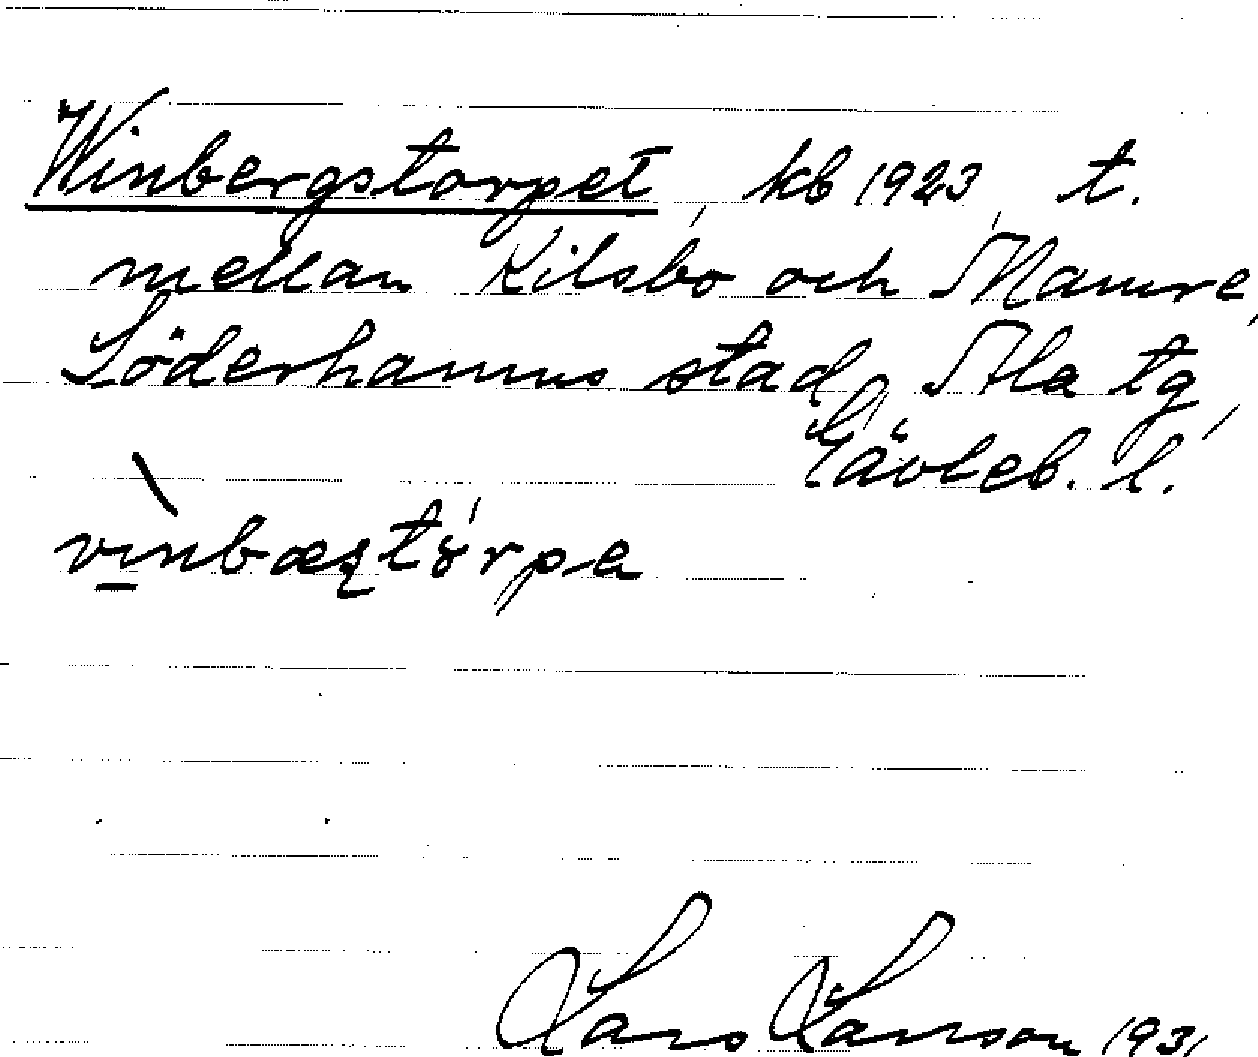 Winbergstorpet, kb 1923, t.
mellan Kilsbo och Mamre,
Söderhamns stad, Ala tg,
Gävleb. l.
vìnbæʂtórpa
Lars Larsson 1931